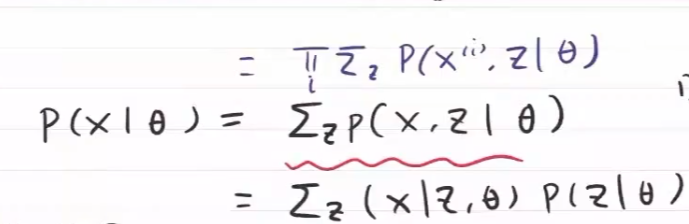 = Π_i Σ_z P(x^(i), z | θ)
P(x | θ) = Σ_z p(x, z | θ)
= Σ_z (x | z, θ) p(z | θ)